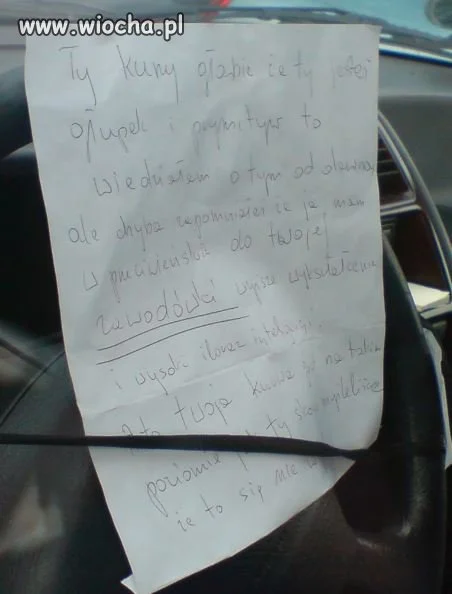 www.wiocha.pl
Ty kurwy głąbie że ty jesteś
głupek i prymityw to
wiedziałem o tym od dawna
ale chyba zapomniałeś że ja mam
w przeciwieństwie do twojej
zawodówki wyższe wykształcenie
i wysoki iloraz inteligencji
twoja kurwa jest na takim
poziomie ty skompleksiony
że to się nie